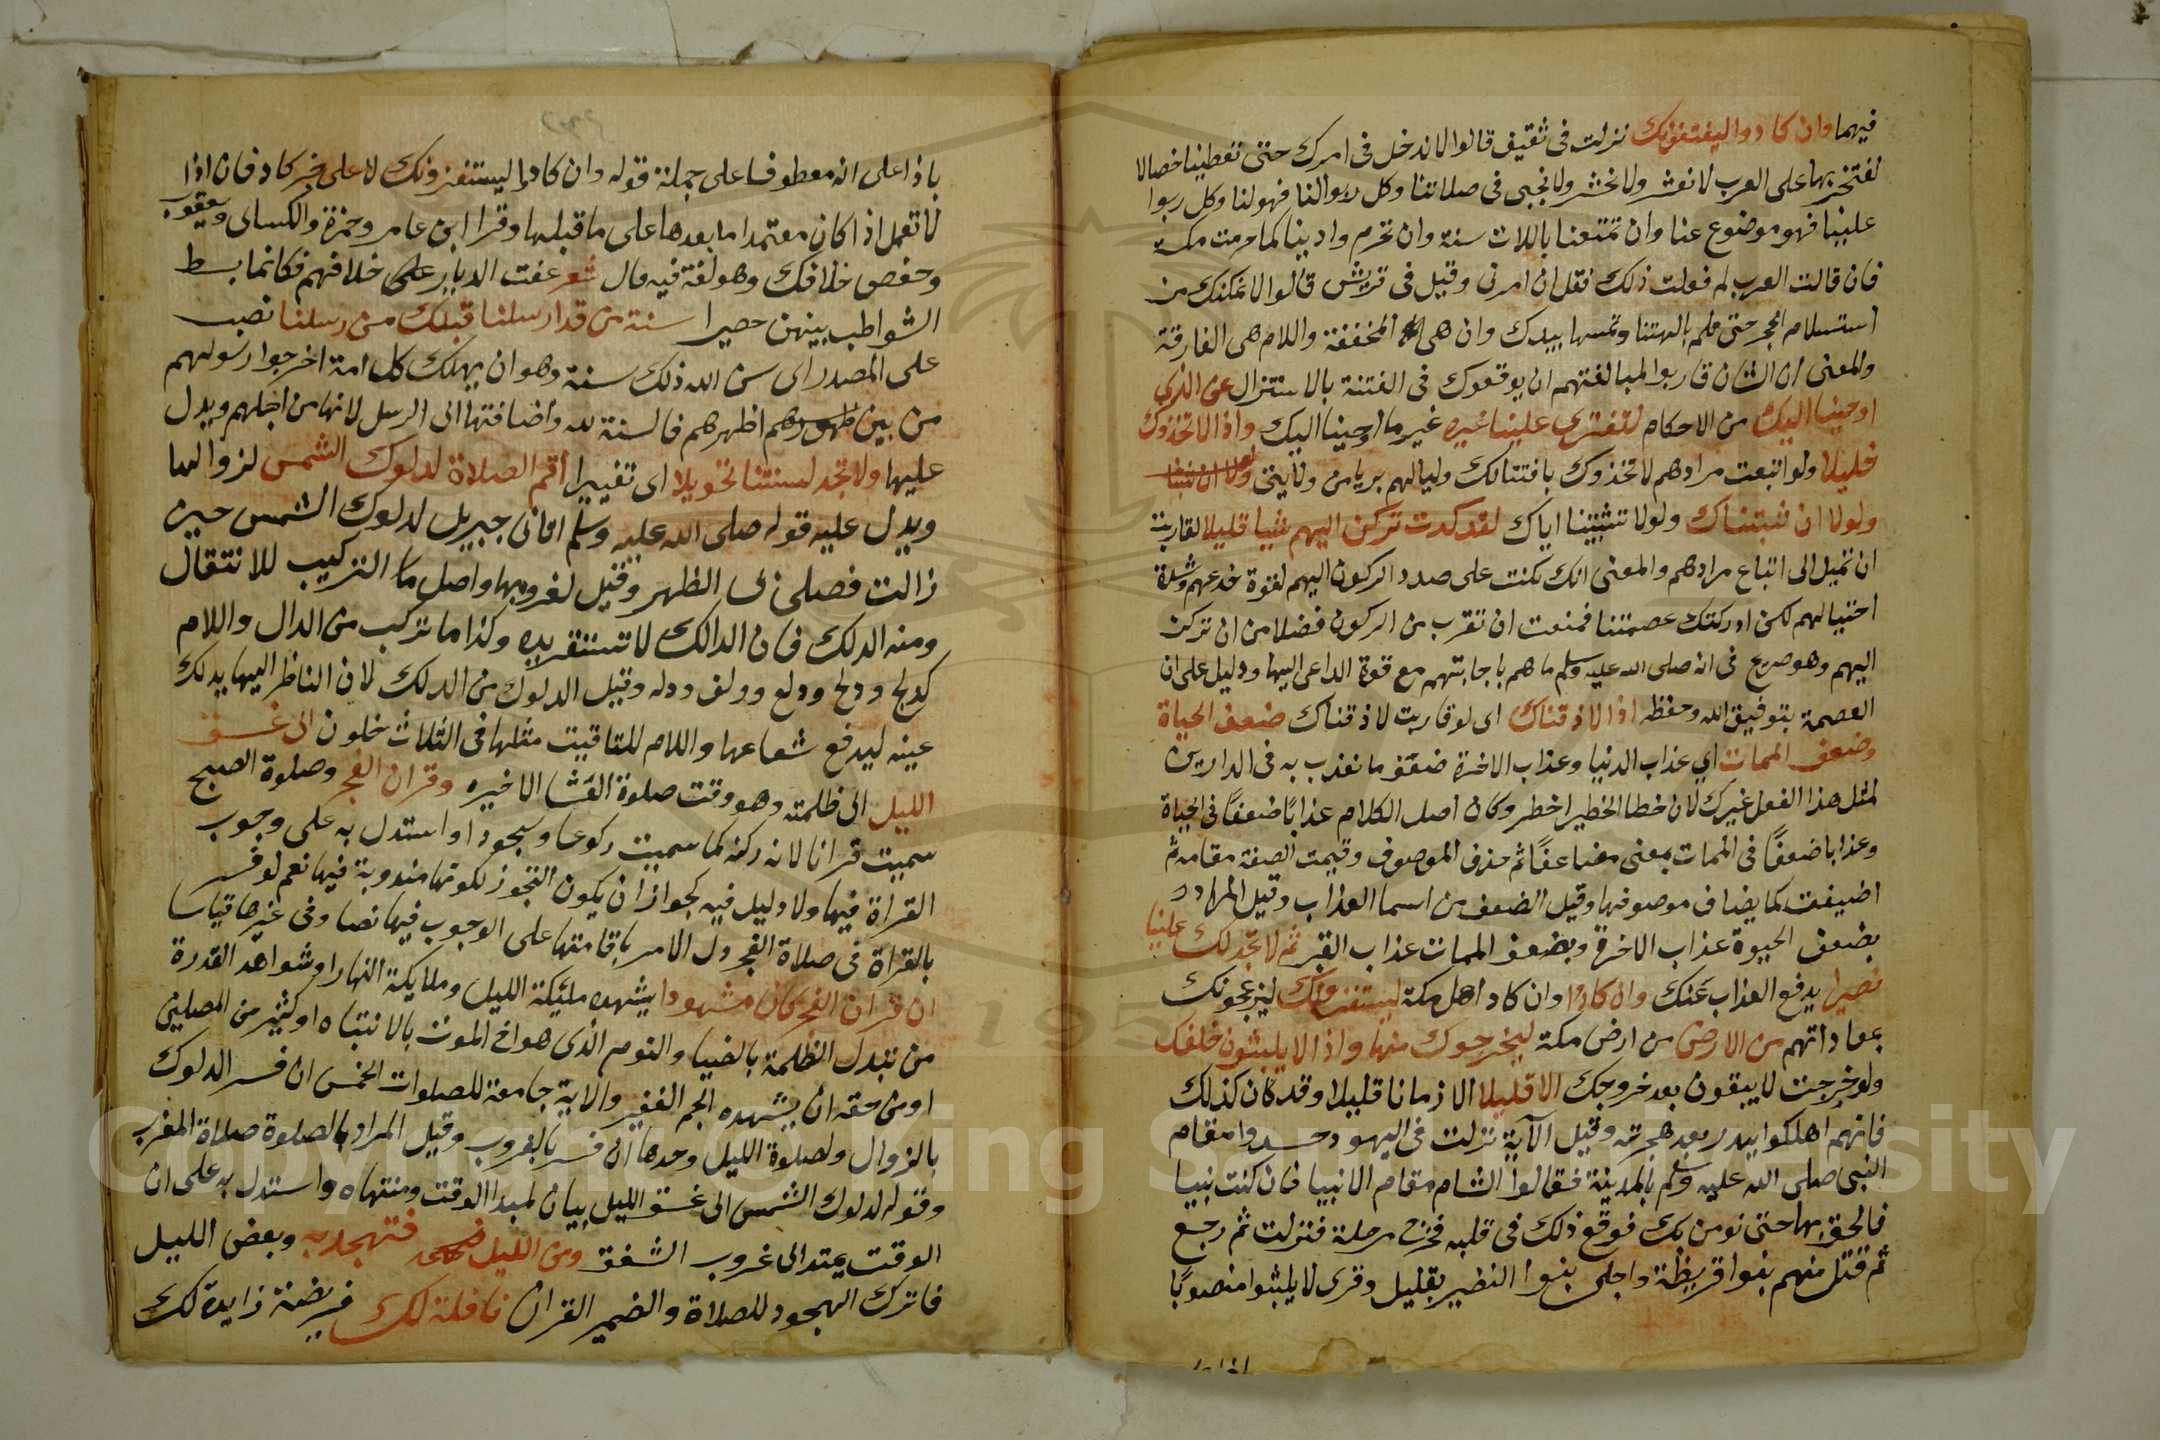 فيهما وان كادوا ليفتنونك نزلت في ثقيف قالوا لا ندخل في امرك حتى تعطينا خصالا
نفتخر بها على العرب لا نعشر ولا نحشر ولا نجبى في صلاتنا وكل ربوا لنا فهو لنا وكل ربوا
علينا فهو موضوع عنا وان تمتعنا باللات سنة وان تحرم وادينا كما حرمت مكة
فان قالت العرب لم فعلت ذلك فقل ان امرنى وقيل في قريش قالوا لا نمكنك من
استسلام الحجر حتى تلم بالهتنا وتمسها بيدك وان هي المخففة واللام هي الفارقة
والمعنى ان الشان قاربوا لمبالغتهم ان يوقعوك في الفتنة بالاستنزال عن الذي
اوحينا اليك من الاحكام لتفتري علينا غيره غير ما اوحينا اليك واذا لاتخذوك
خليلا ولو اتبعت مرادهم لاتخذوك بافتتانك وليا لهم بريا من ولايتى ولولا ان ثبتنا
ولولا ان ثبتناك ولولا تثبيتنا اياك لقد كدت تركن اليهم شيا قليلا لقاربت
ان تميل الى اتباع مرادهم والمعنى انك كنت على صدد الركون اليهم لقوة خدعهم وشدة
احتيالهم لكن ادركتك عصمتنا فمنعت ان تقرب من الركون فضلا من ان تركن
اليهم وهو صريح في انه صلى الله عليه وسلم ما هم باجابتهم مع قوة الداعى اليها ودليل على ان
العصمة بتوفيق الله وحفظه اذا لاذقناك اى لو قاربت لاذقناك ضعف الحياة
وضعف الممات اي عذاب الدنيا وعذاب الاخرة ضعف ما نعذب به في الدارين
لمثل هذا الفعل غيرك لان خطا الخطير اخطر وكان اصل الكلام عذابا ضعفا في الحياة
وعذابا ضعفا في الممات بمعنى مضاعفا ثم حذف الموصوف وقيمت الصفة مقامه ثم
اضيفت كما يضاف موصوفها وقيل الضعف من اسما العذاب وقيل المراد
بضعف الحيوة عذاب الاخرة وبضعف الممات عذاب القبر ثم لا تجد لك علينا
نصيرا يدفع العذاب عنك وان كادوا وان كاد اهل مكة ليستفزونك ليزعجونك
بعاداتهم من الارض من ارض مكة ليخرجوك منها واذا لا يلبثون خلفك
ولو خرجت لا يبقون بعد خروجك الا قليلا الا زمانا قليلا وقد كان كذلك
فانهم اهلكوا ببدر بعد هجرته وقيل الآية نزلت في اليهود حسدوا مقام
النبى صلى الله عليه وسلم بالمدينة فقالوا الشام مقام الانبيا فان كنت نبيا
فالحق بها حتى نومن بك فوقع ذلك في قلبه فخرج مرحلة فنزلت ثم رجع
ثم قتل منهم بنوا قريظة واجلى بنوا النضير بقليل وقرى لا يلبثوا منصوبا
باذا على انه معطوف على جملة قوله وان كادوا ليستفزونك لا على خبر كاد فان اذا
لا تعمل اذا كان معتمدا ما بعدها على ما قبلها وقرا ابن عامر وحمزة والكساى ويعقوب
وحفص خلافك وهو لغة فيه قال شعر عفت الديار على خلافهم فكانما بسط
الشواطب بينهن حصيرا سنة من قد ارسلنا قبلك من رسلنا نصب
على المصدر اى سن الله ذلك سنة وهو ان يهلك كل امة اخرجوا رسولهم
من بين ظهورهم اظهرهم فالسنة لله واضافتها الى الرسل لانها من اجلهم ويدل
عليها ولا تجد لسنتنا تحويلا اى تغييرا أقم الصلاة لدلوك الشمس لزوالها
ويدل عليه قوله صلى الله عليه وسلم اتانى جبريل لدلوك الشمس حين
زالت فصلى بى الظهر وقيل لغروبها واصل ما التركيب للانتقال
ومنه الدلك فان الدالك لا تستقر يده وكذا ما تركب من الدال واللام
كدلج ودلح ودلع ودلف ودله وقيل الدلوك من الدلك لان الناظر اليها يدلك
عينه ليدفع شعاعها واللام للتاقيت مثلها في الثلاث خلون الى غسق
الليل الى ظلمته وهو وقت صلوة العشا الاخيره وقران الفجر وصلوة الصبح
سميت قرانا لانه ركنه كما سميت ركوعا وسجودا واستدل به على وجوب
القراة فيها ولا دليل فيه لجواز ان يكون التجوز لكونها مندوبة فيها نعم لو فسر
بالقراة في صلاة الفجر دل الامر باقامتها على الوجوب فيها نصا وفى غيرها قياسا
ان قران الفجر كان مشهودا يشهده مليكة الليل وملايكة النهار او شواهد القدرة
من تبدل الظلمة بالضيا والنوم الذى هو اخ الموت بالانتباه او كثير من المصلين
او من حقه ان يشهده الجم الغفير والاية جامعة للصلوات الخمس ان فسر الدلوك
بالزوال ولصلوة الليل وحدها ان فسر بالغروب وقيل المراد بالصلوة صلاة المغرب
وقوله لدلوك الشمس الى غسق الليل بيان لمبدا الوقت ومنتهاه واستدل به على ان
الوقت يمتد الى غروب الشفق ومن الليل فتهجد به وبعض الليل
فاترك الهجود للصلاة والضمير القران نافلة لك فريضة زايدة لك
Copyright © King Saud University